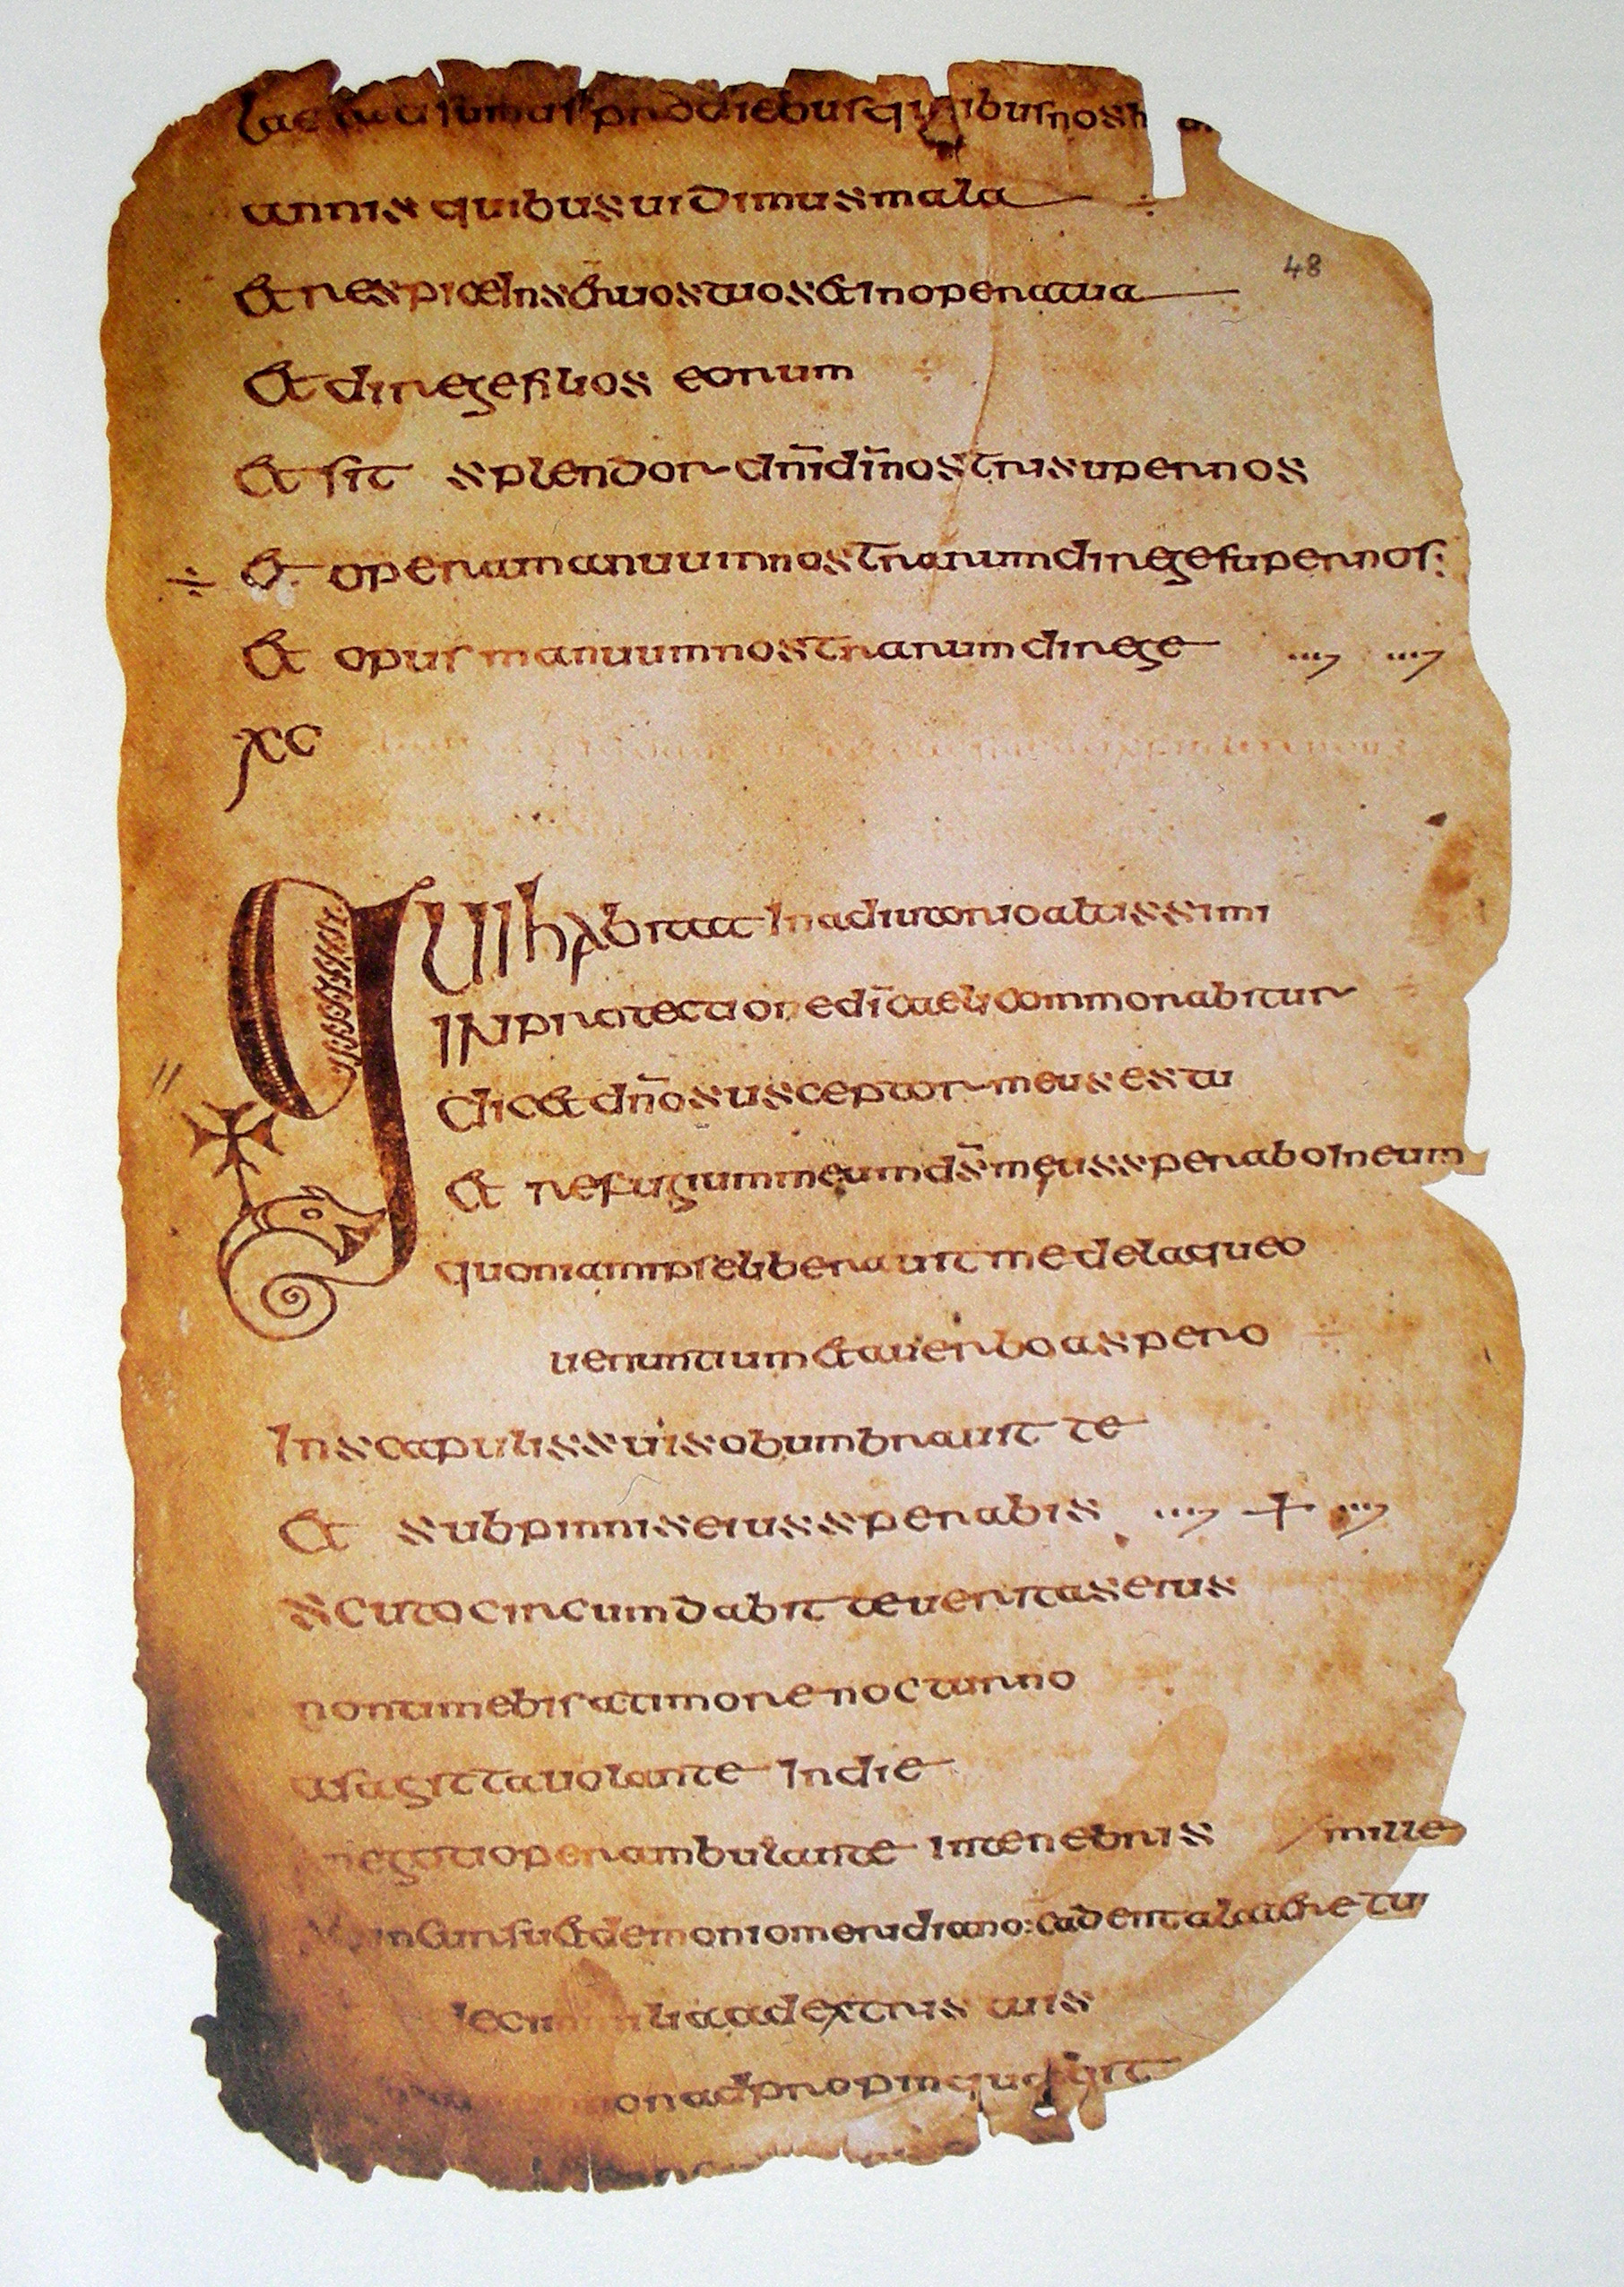 Laetatisumus prodiebus quibus nos h
annis quibus uidimus mala
48
& respice Inseruos tuos & Inopera tua
& dirige filios eorum
& sit splendor dn̄i dī nostri super nos
÷ & opera manuum nostrarum dirige super nos:
& opus manuum nostrarum dirige
xc
Qui habitat In adiutorio altissimi
IN protectione dī caeli commorabitur
Dic& dn̄o susceptor meus es tu
& refugium meum ds̄ meus sperabo In eum
quoniam ipse liberauit me de laqueo
uenantium & a uerbo aspero
In scapulis suis obumbrauit te
& sub pinnis eius sperabis
scuto circumdabit te ueritas eius
non timebis a timore nocturno
a sagitta uolante In die
negotio perambulante In tenebris / mille
demonio meridiano: cadent a latere tu
decim lia a dextris tuis
non adpropinquabit